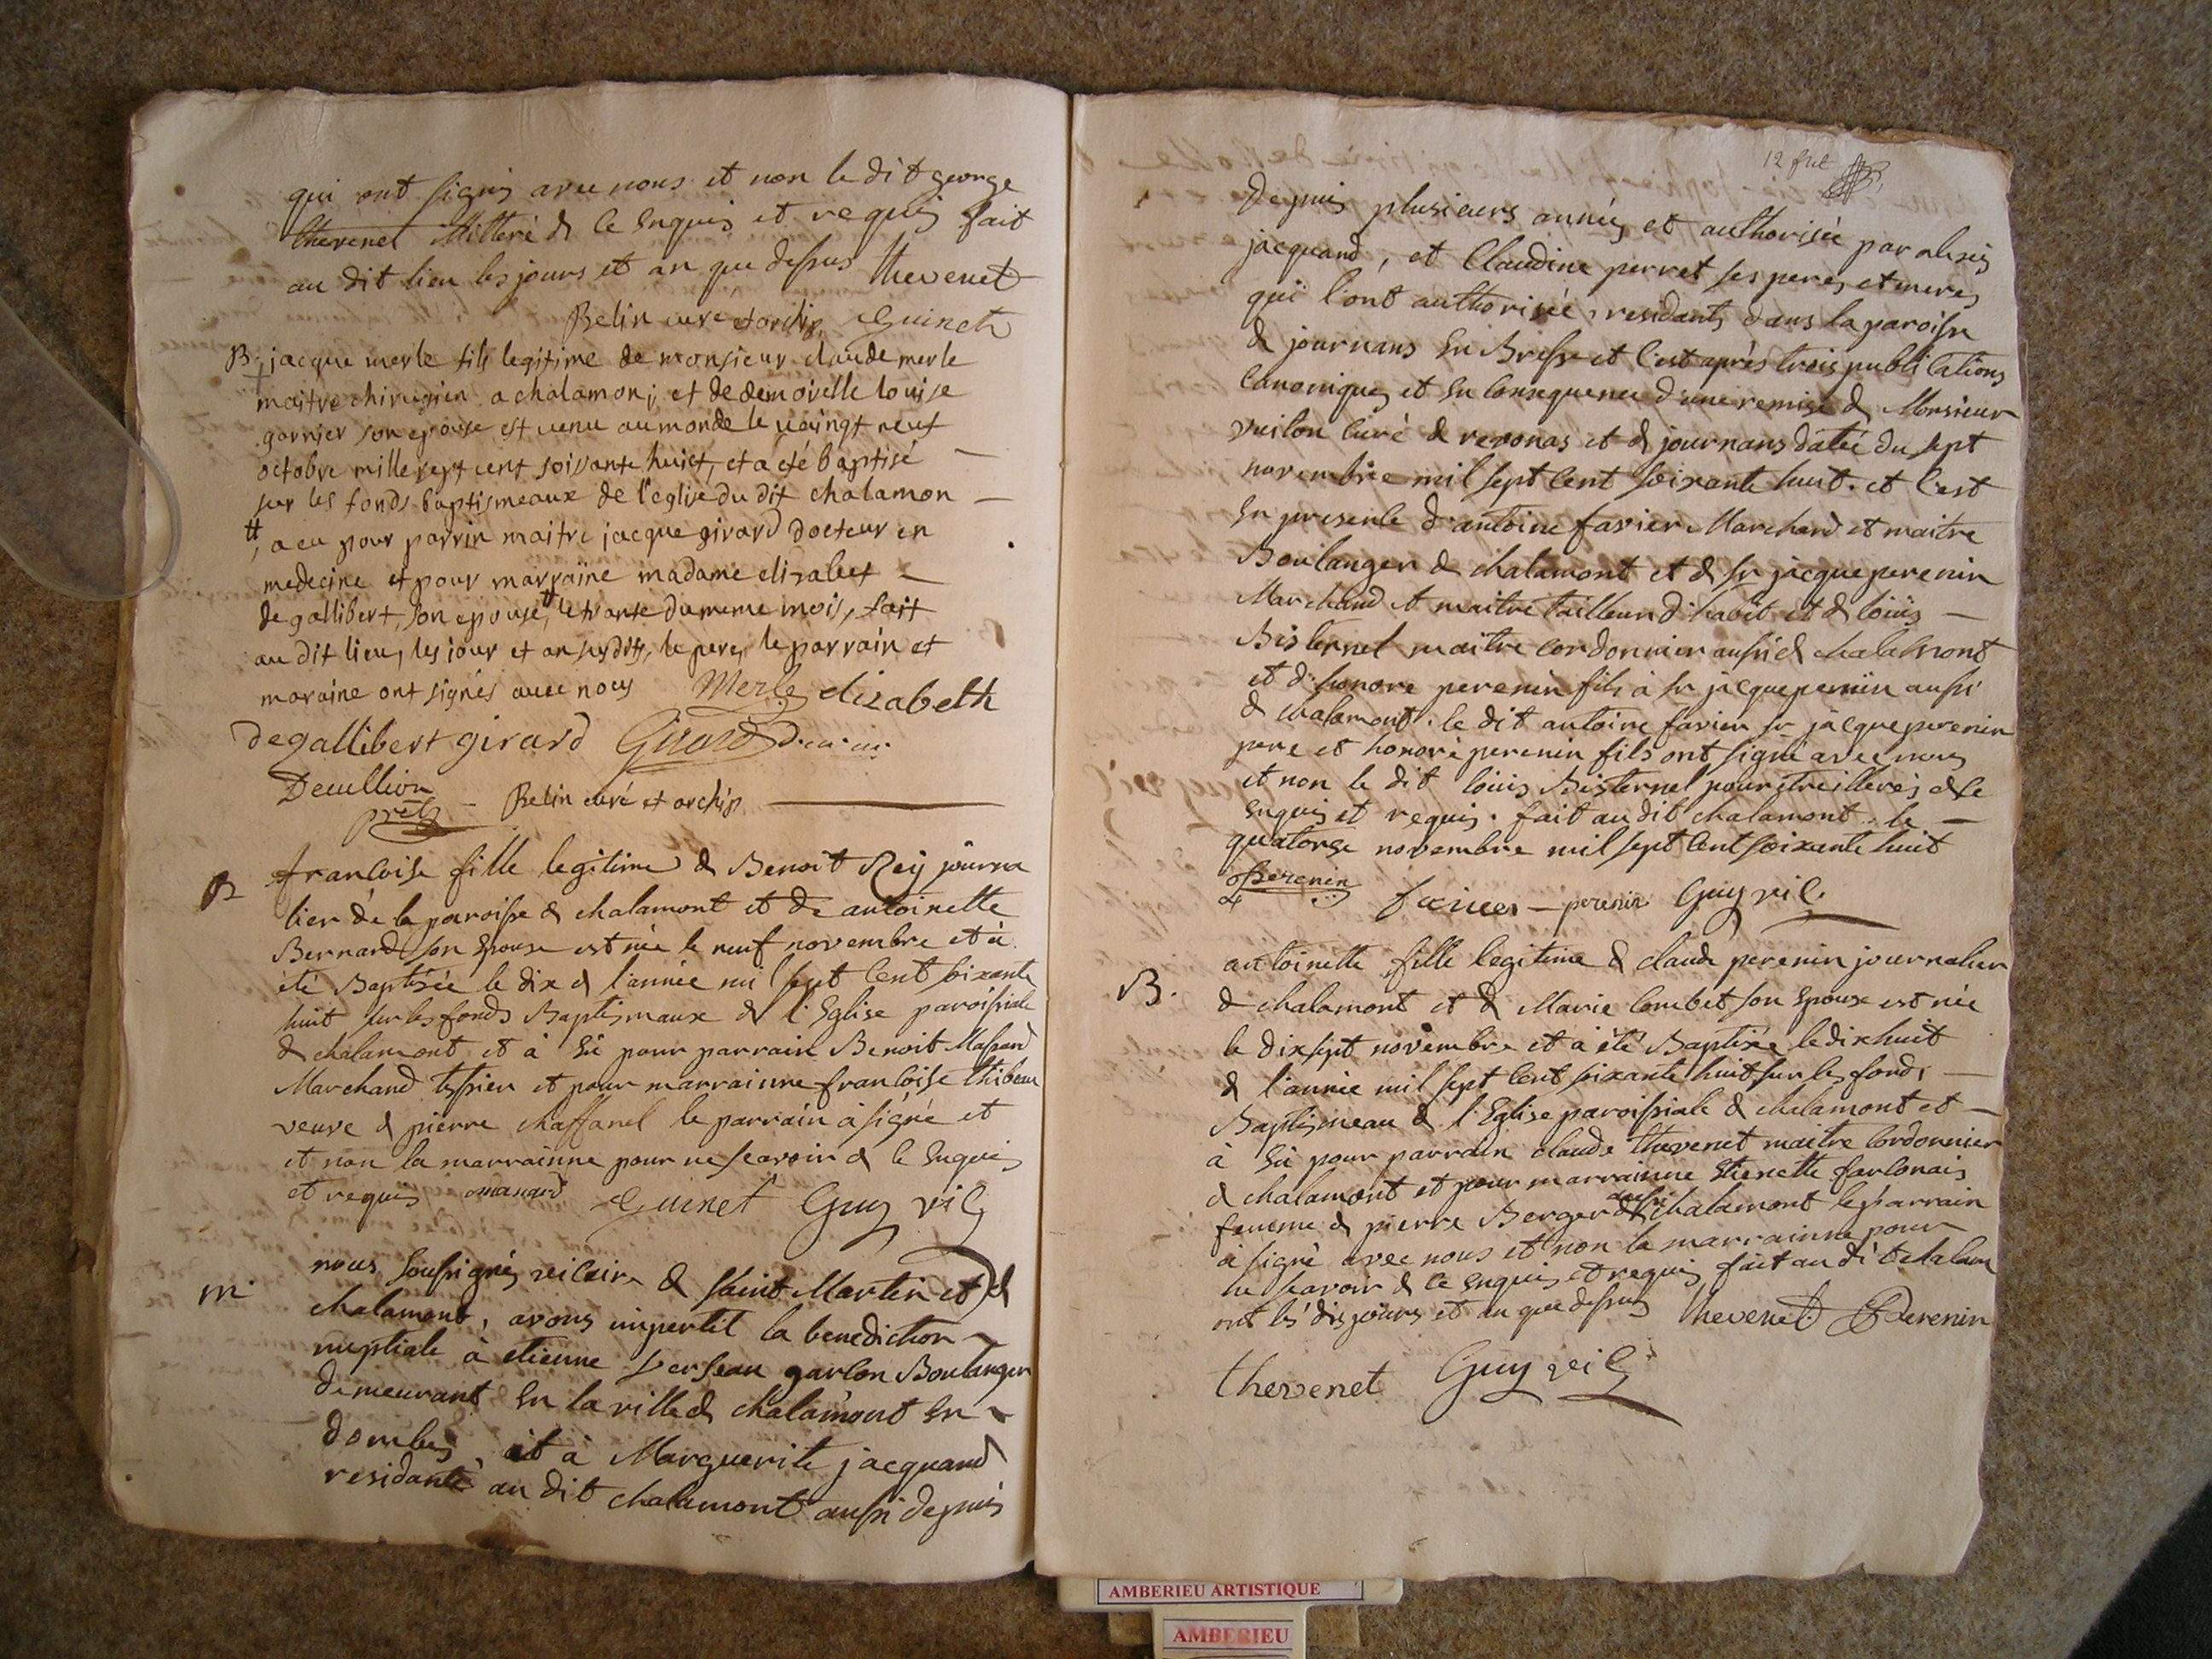 qui ont signés avec nous et non le dit george
thevenet illitere de ce enquis et requis fait
au dit lieu les jours et an que dessus thevenet
Belin curé et archip. Guinet
B jacque merle fils legitime de monsieur claude merle
maitre chirugien a chalamon; et de demoiselle louise
garnier son epouse est venu au monde le vaingt neuf
octobre mille sept cent soissante huict, et a été baptisé
sur les fonds baptismeaux de l'eglise du dit chalamon
, a eu pour parrin maitre jacque girard docteur en
medecine et pour marraine madame elisabet
de gallibert, son epouse, le trante du meme mois, fait
au dit lieu, les jour et an susdits, le pere, le parrain et
maraine ont signés avec nous Merle elizabeth
degallibert girard Girard
Decullion
prêt Belin curé et archip.
B francoise fille legitime de Benoit Rey journa
lier de la paroisse de chalamont et de antoinette
Bernard son Epouse est née le neuf novembre et à
été Baptisée le dix de l'année mil sept Cent soixante
huit sur les fonds Baptismaux de l'Eglise paroissiale
de chalamont et à Eü pour parrain Benoit
Marchand tissier et pour marrainne francoise thibeau
veuve de pierre chaffanel le parrain à signé et
et non la marrainne pour ne scavoir de ce Enquis
et requis Guinet Guy vic
m nous soussignés vicaire de saint Martin et de
chalamont, avons impertit la benediction
nuptiale à etienne garcon Boulanger
demeurant En la ville de chalamont En
dombes, et à Marguerite jacquand
residante au dit chalamont aussi depuis
12 fuil
depuis plusieurs années et authorisée par alexis
jacquand, et Claudine perret ses peres et meres
qui l'ont authorisée, residants dans la paroisse
de journans En Bresse et c'est après trois publications
Canoniques et En Consequence d'une remise de Monsieur
vuilon Curé de revonas et de journans datée du sept
novembre mil sept Cent soixante huit. et c'est
En presence d'antoine favier Marchand et maitre
Boulanger de chalamont et de sr jacque perenin
Marchand et maitre tailleur d'habit et de loüis
Bisternel maitre Cordonnier aussi de chalamont
et d'honore perenin fils à sr jacque perenin aussi
de chalamont. le dit antoine favier sr jacque perenin
pere et honoré perenin fils ont signé avec nous
et non le dit loüis Bisternel pour etre illeres de Ce
Enquis et requis. fait au dit chalamont le
quatorse novembre mil sept Cent soixante huit
Perenin favier perenin Guy vic.
B. antoinette fille legitime de claude perenin journalier
de chalamont et de Marie Combet son Epouse est née
le dixsept novembre et a été Baptisée le dixhuit
de l'année mil sept Cent soixante huit sur les fonds
Baptismeau de l'Eglise paroissiale de chalamont et
à Eü pour parrain claude thevenet maitre Cordonnier
de chalamont et pour marrainne Etienette farlonais
femme de pierre Berger aussi de chalamont le parrain
à signé avec nous et non la marrainne pour
ne scavoir de Ce Enquis et requis fait au dit chalam
ont les dis jours et an que dessus thevenet Perenin
thevenet Guy vic
AMBERIEU ARTISTIQUE
AMBERIEU